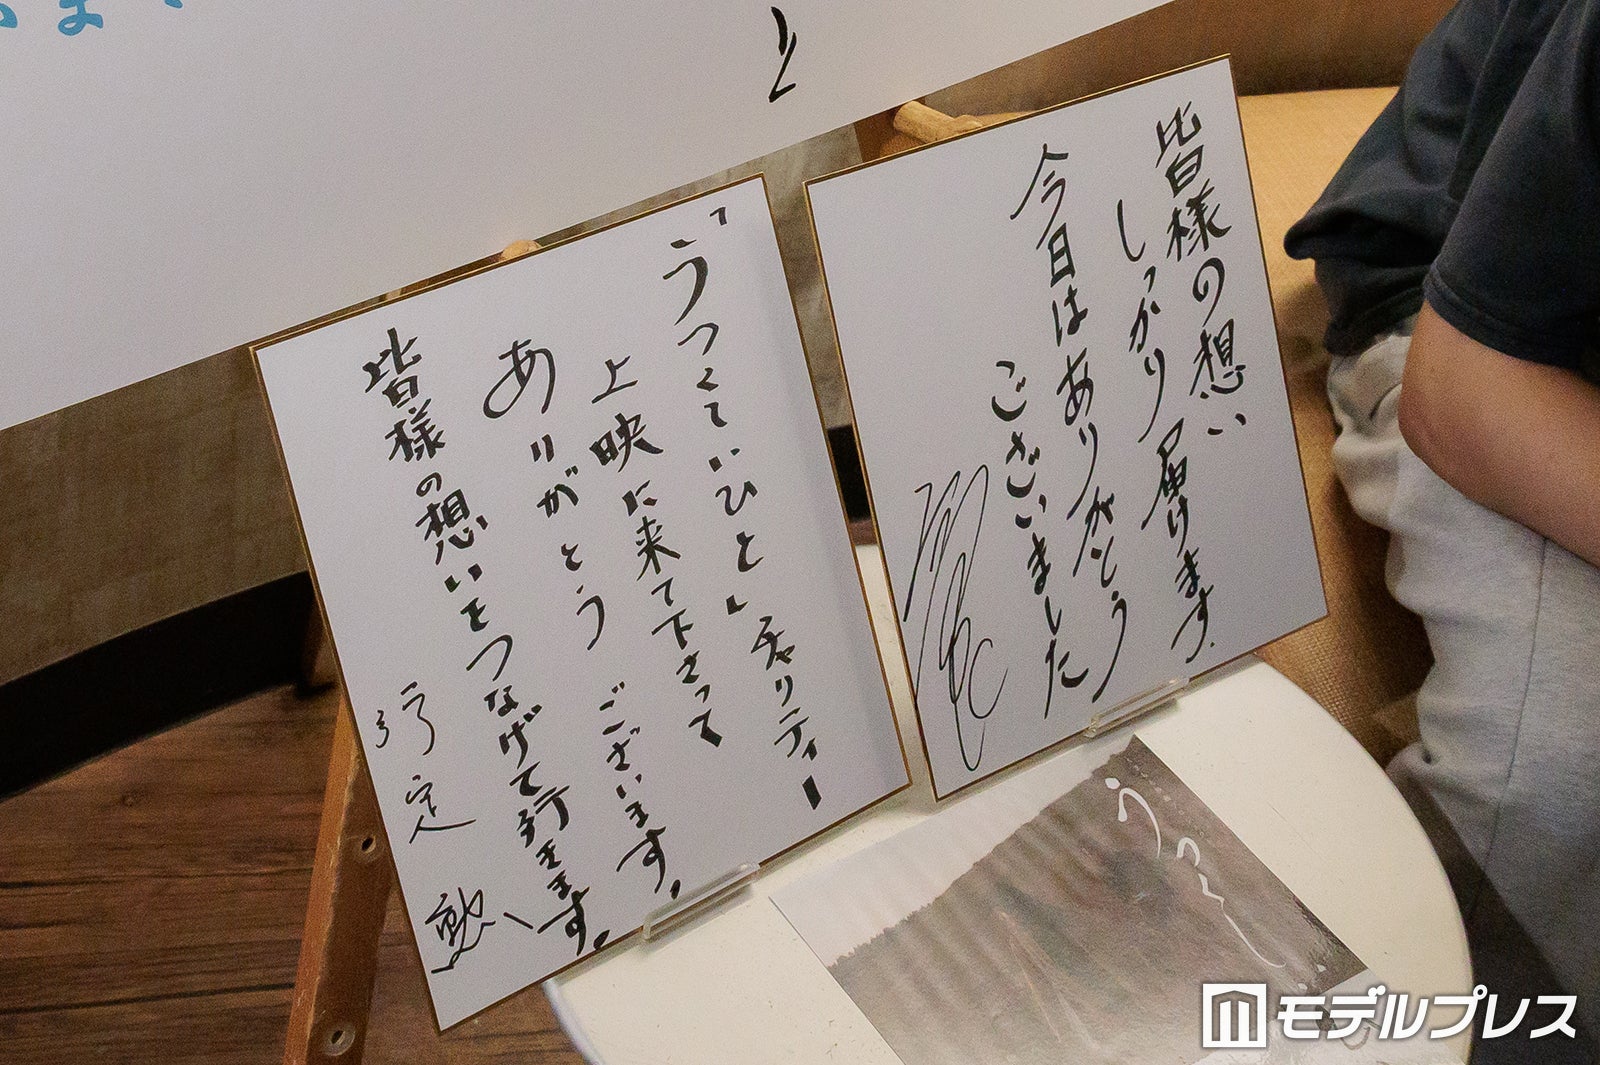 皆様の想い
しっかり届けます。
今日はありがとう
ございました
「うつくしいひと」チャリティー
上映に来て下さって
ありがとうございます。
皆様の想いをつなげて行きます。
行定 勲
うつくし
モデルプレス